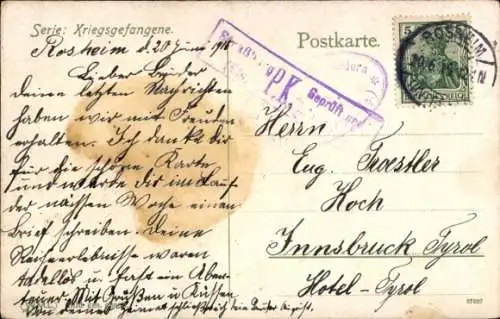 Serie: Kriegsgefangene.
Postkarte.
Rosheim d. 20 Juni 1915
Lieber Bruder
deinen letzten Nachrichten
haben wir mit Freuden
erhalten. Ich danke dir
für die schönen Karte
und werde Dir im Lauf
der nächsten Woche einen
Brief schreiben. Deine
Reiseerlebnisse waren
tadellos u. fast ein Aben-
teuer. Mit Grüßen u. Küssen
PK
Geprüft
5
ROSHEIM
Herrn
Eug. Troestler
Hoch
Innsbruck Tyrol
Hotel-Tyrol